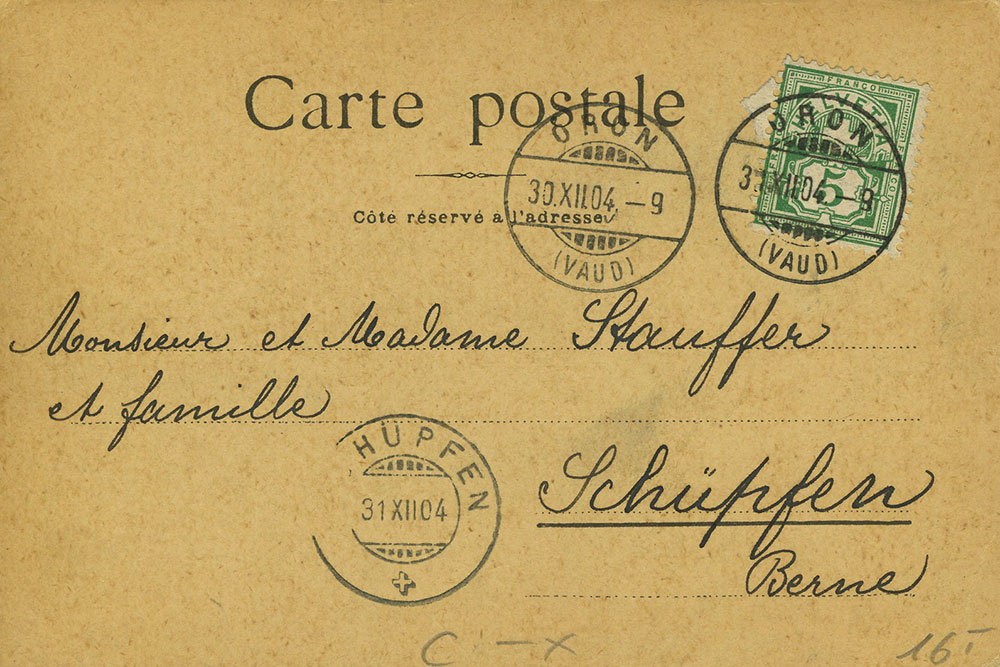 Carte postale
Côté réservé à l'adresse
FRANCO
HELVETIA
5
ORON
30.XII.04.–9
(VAUD)
ORON
30.XII.04.–9
(VAUD)
Monsieur et Madame Stauffer
et famille
HÜPFEN
31 XII 04
Schüpfen
Berne
C – X